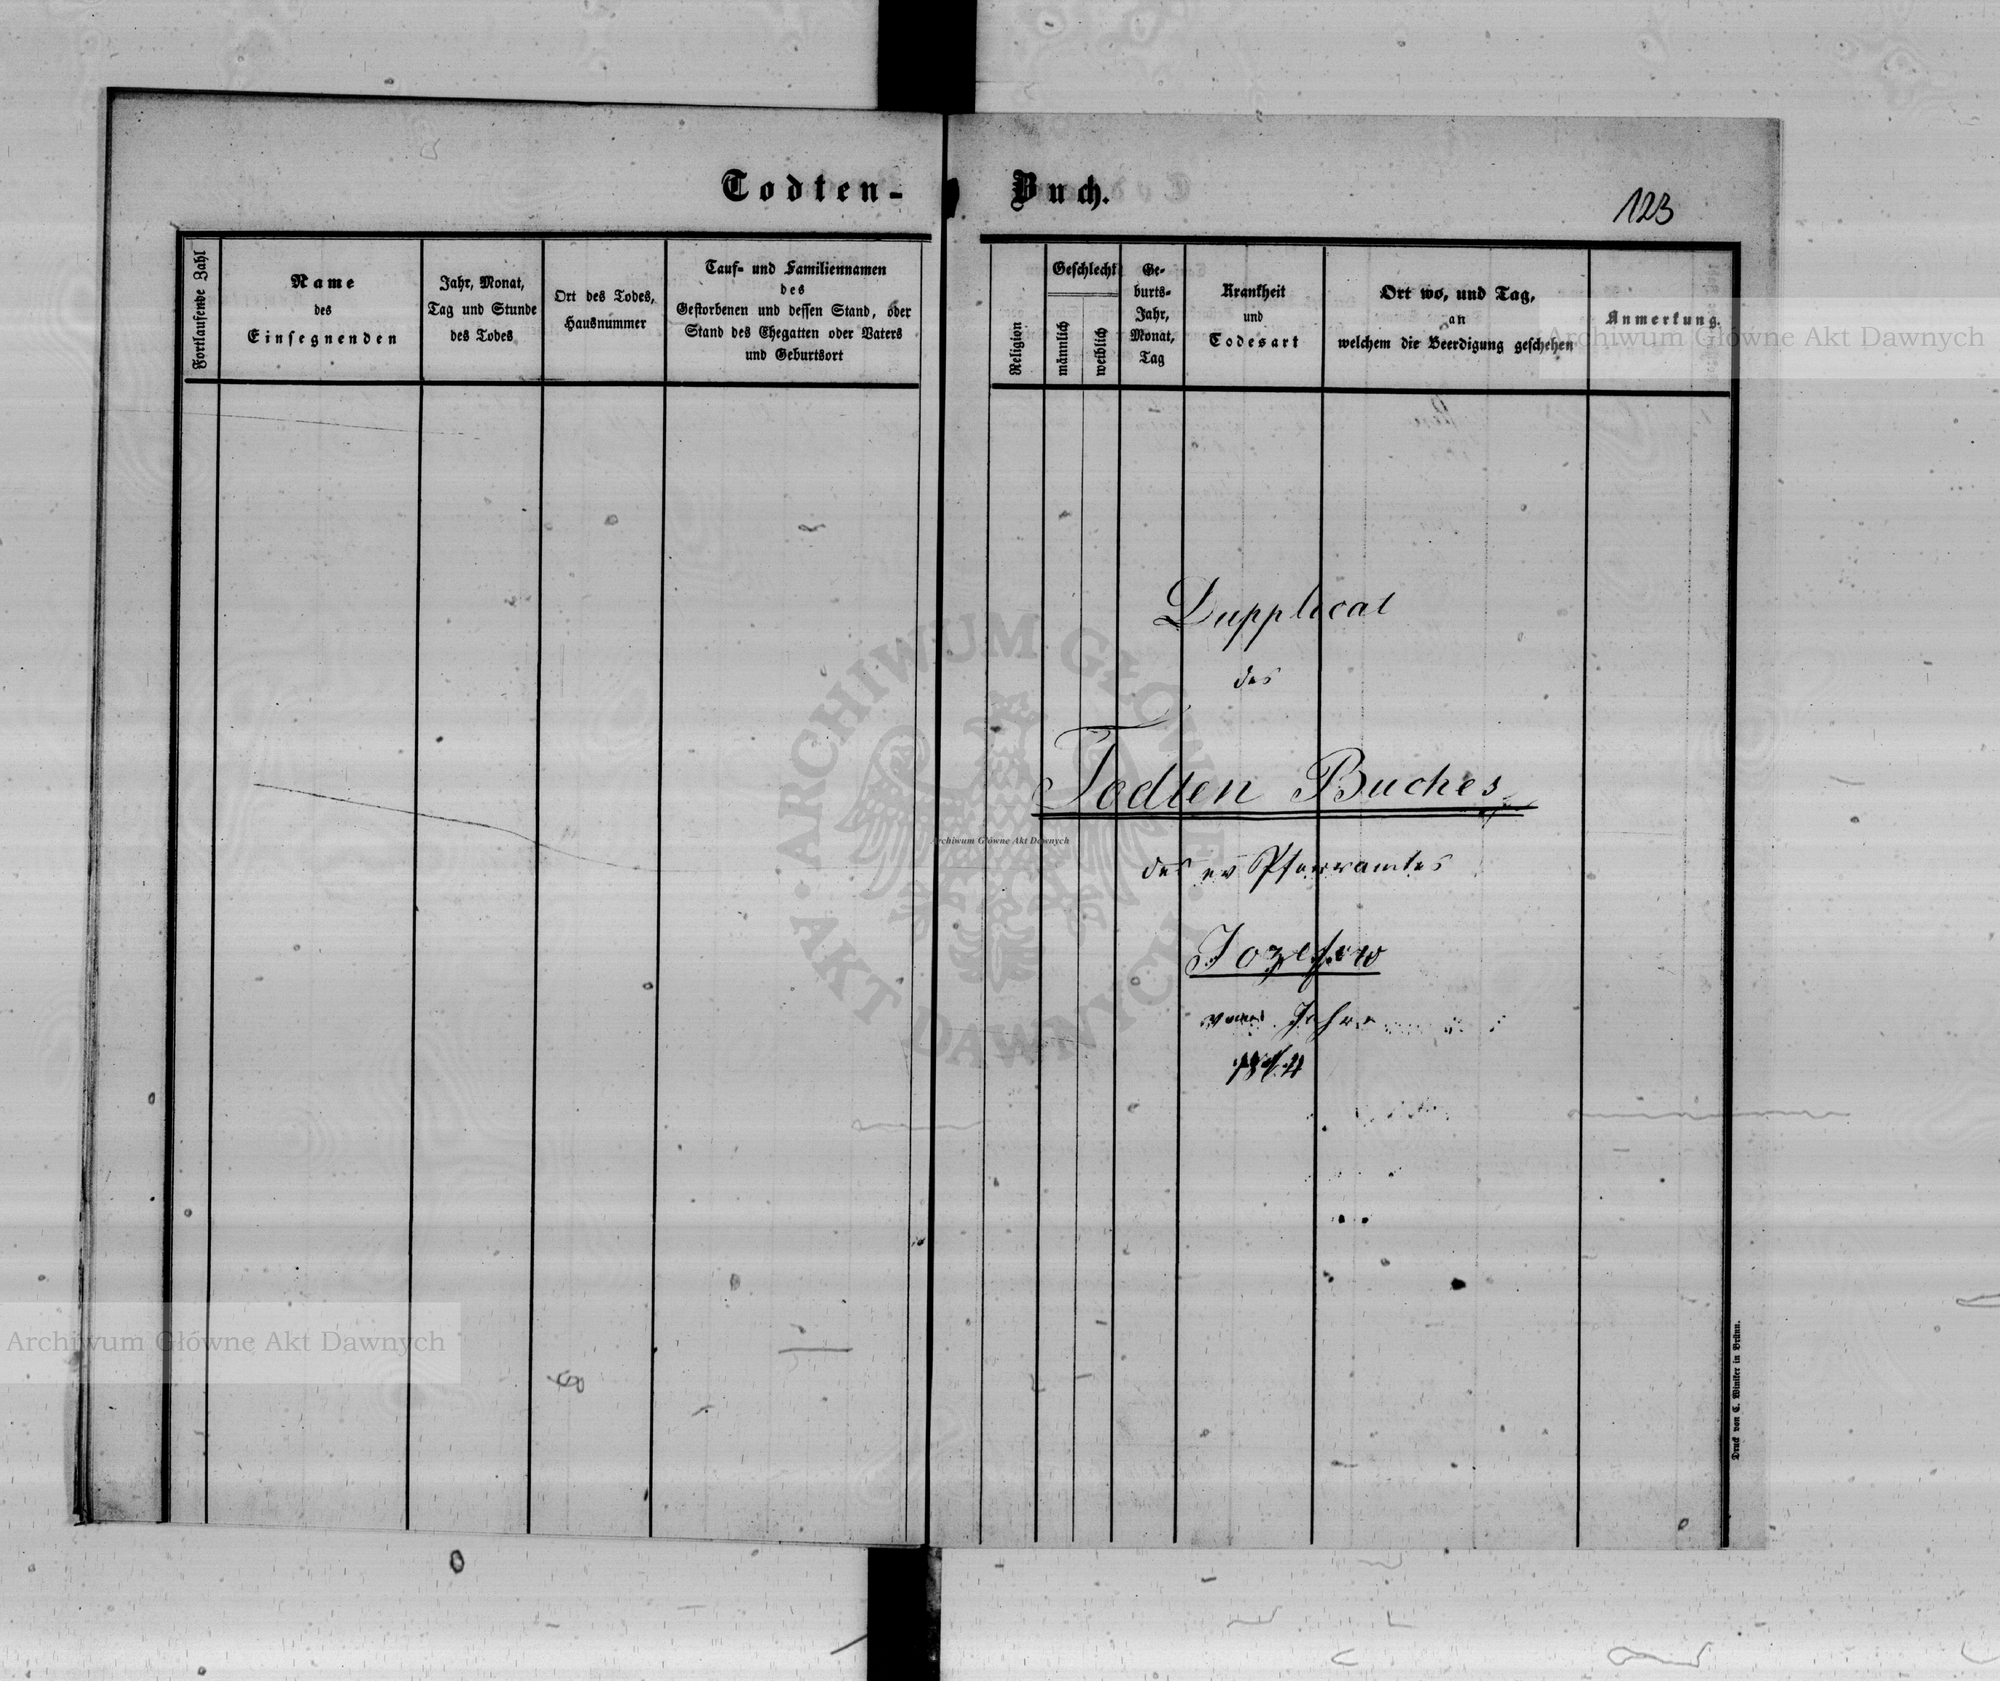 Todten-Buch.
123
Fortlaufende Zahl
Name
des
Einsegnenden
Jahr, Monat,
Tag und Stunde
des Todes
Ort des Todes,
Hausnummer
Tauf- und Familiennamen
des
Gestorbenen und dessen Stand, oder
Stand des Ehegatten oder Vaters
und Geburtsort
Religion
Geschlecht
männlich
weiblich
Ge-
burts-
Jahr,
Monat,
Tag
Krankheit
und
Todesart
Ort wo, und Tag,
an
welchem die Beerdigung geschehen
Anmerkung.
Dupplicat
des
Todten Buches
des ev Pfarramtes
Jozefow
vom Jahre
Druck von C. Winiker in Brünn.
ARCHIWUM GŁÓWNE AKT DAWNYCH
Archiwum Główne Akt Dawnych
Archiwum Główne Akt Dawnych
Archiwum Główne Akt Dawnych